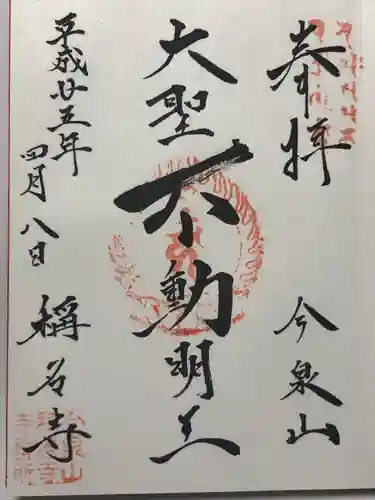 奉拝
今泉山
大聖不動明王
平成廿五年
四月八日
稱名寺